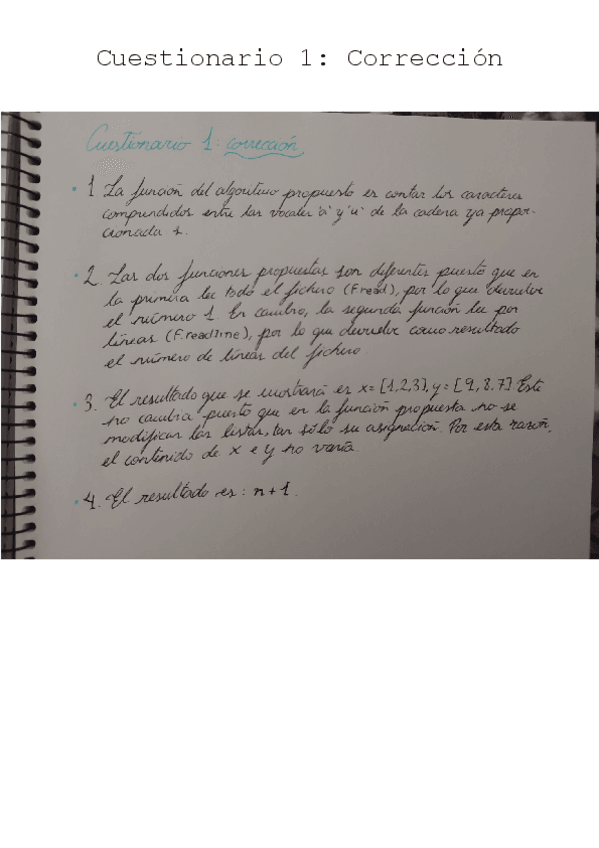 Cuestionario 1: Corrección
Cuestionario 1: corrección
1 La función del algoritmo propuesto es contar los caracteres
comprendidos entre las vocales 'a' y 'u' de la cadena ya propor-
cionada s.
2. Las dos funciones propuestas son diferentes puesto que en
la primera lee todo el fichero (F.read), por lo que devuelve
el número 1. En cambio, la segunda función lee por
líneas (F.readline), por lo que devuelve como resultado
el número de líneas del fichero
3. El resultado que se mostrará es x=[1,2,3], y=[9,8,7]. Este
no cambia puesto que en la función propuesta no se
modifican las listas, tan sólo su asignación. Por esta razón,
el contenido de x e y no varía.
4. El resultado es: n+1.